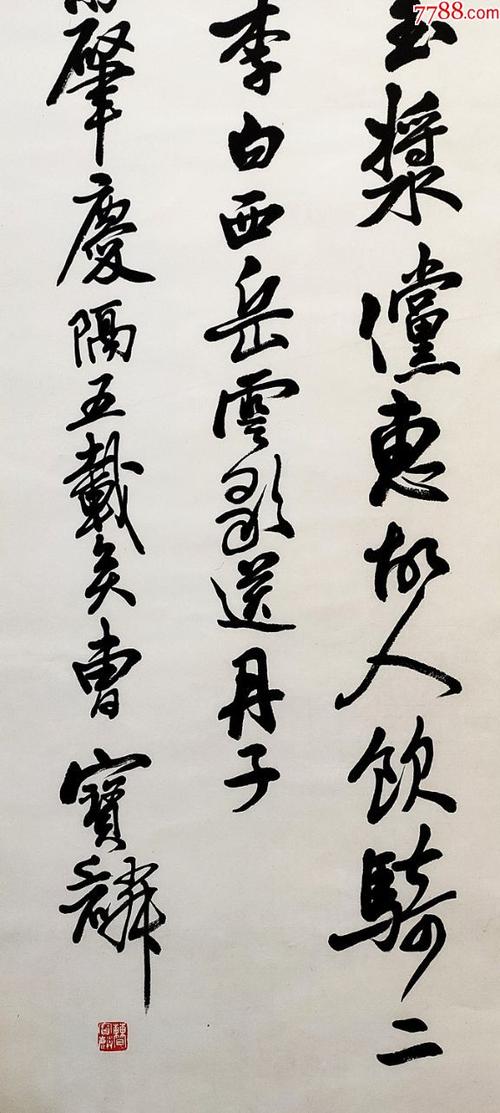 7788.com
玉漿儻惠故人飲騎二
李白西岳雲歌送丹子
肇慶隔五載矣曹寶麟